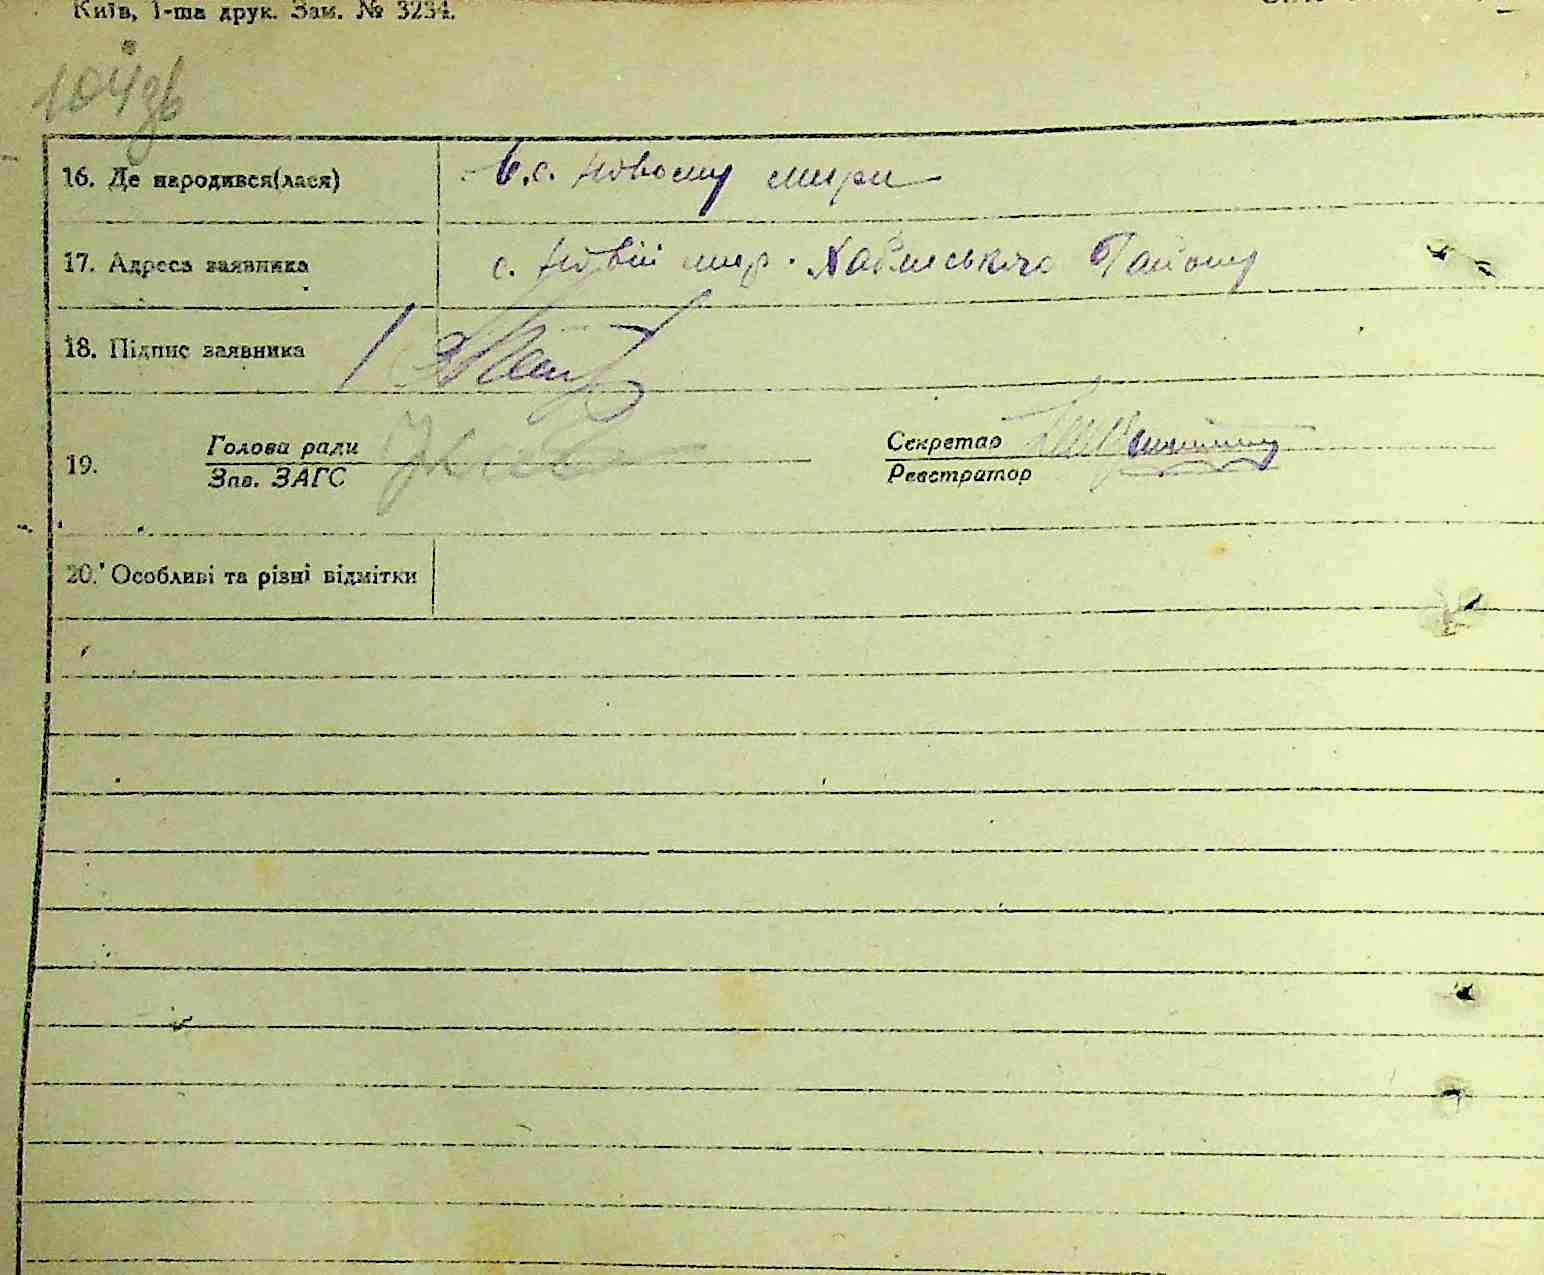 Київ, 1-ша друк. Зам. № 3234.
104зв
16. Де народився(лася) в.с. Новому мири
17. Адреса заявника с. Новій мир. Хабнського Району
18. Підпис заявника
19. Голова ради Секретар
Зав. ЗАГС Реєстратор
20. Особливі та різні відмітки